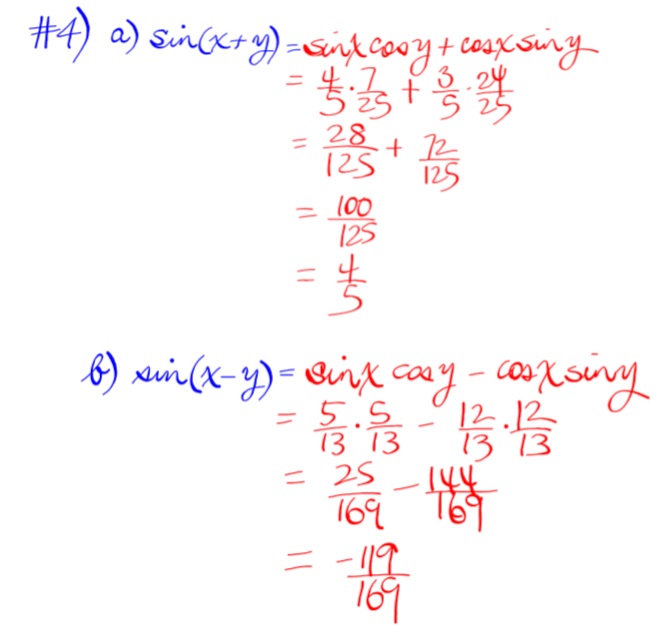 #4) a) sin(x+y) = sinx cosy + cosx siny
= 4/5 · 7/25 + 3/5 · 24/25
= 28/125 + 72/125
= 100/125
= 4/5
b) sin(x-y) = sinx cosy - cosx siny
= 5/13 · 5/13 - 12/13 · 12/13
= 25/169 - 144/169
= -119/169